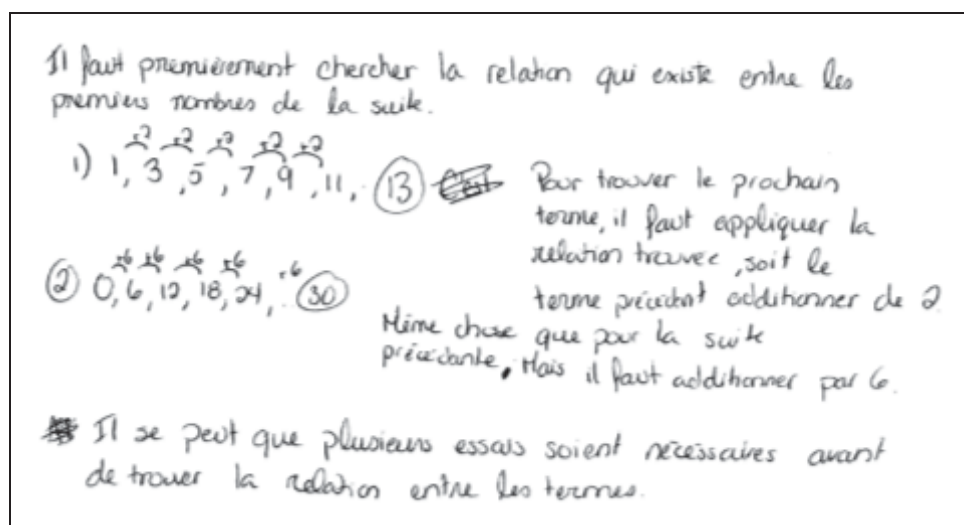 Il faut premièrement chercher la relation qui existe entre les
premiers nombres de la suite.
+2 +2 +2 +2 +2
1) 1, 3, 5, 7, 9, 11, 13
Pour trouver le prochain
terme, il faut appliquer la
relation trouvée, soit le
terme précédant additionner de 2
+6 +6 +6 +6 +6
2 0, 6, 12, 18, 24, 30
Même chose que pour la suite
précédante, Mais il faut additionner par 6.
Il se peut que plusieurs essais soient nécessaires avant
de trouver la relation entre les termes.